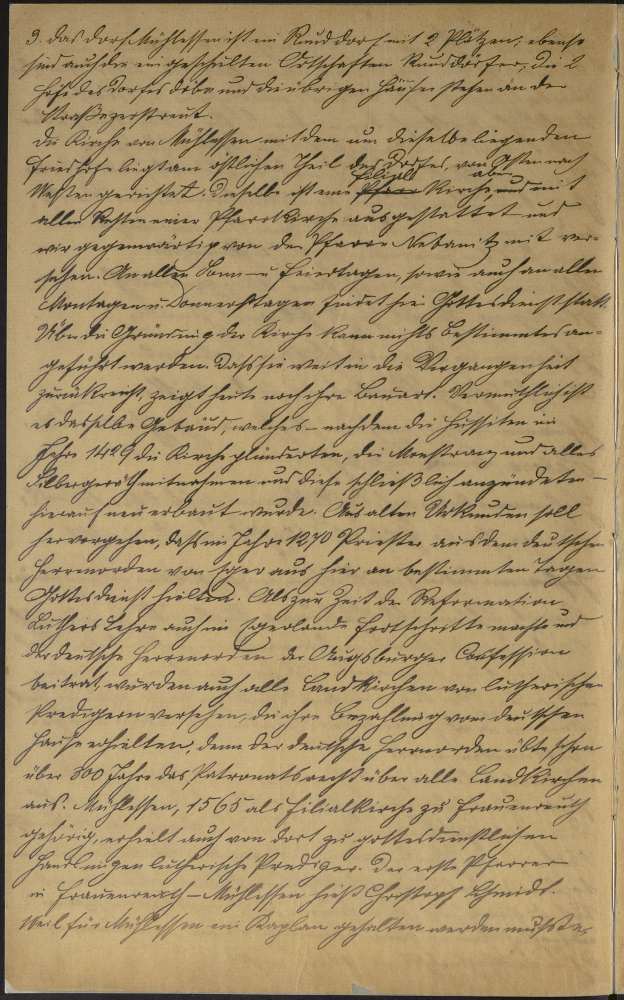 3. Das Dorf Mühlessen ist ein Runddorf mit 2 Plätzen; ebenso
sind auch die eingeschulten Ortschaften Runddörfer, die 2
Höfe des Dorfes Döba und die übrigen Häuser stehen an der
Straße zerstreut.
Die Kirche von Mühlessen mit dem um dieselbe liegenden
Friedhofe liegt am östlichen Theil des Dorfes, von Osten nach
Westen gerichtet. Dieselbe ist eine Filial Kirche, aber mit
allen Rechten einer Pfarrkirche ausgestattet und
wir gegenwärtig von der Pfarre Nebanitz mit ver-
sehen. An allen Sonn- u Feiertagen, sowie auch an allen
Montagen u. Donnerstagen findet hier Gottesdienst statt.
Über die Gründung der Kirche kann nichts Bestimmtes an-
geführt werden. Dass sie weit in die Vergangenheit
zurückreicht, zeigt heute noch ihre Bauart. Vermuthlich ist
es dasselbe Gebäud, welches – nachdem die Hussiten im
Jahre 1429 die Kirche plünderten, die Monstranz und alles
Silbergeräth mitnahmen und diese schließlich anzündeten –
hierauf neu erbaut wurde. Aus alten Urkunden soll
hervorgehen, dass im Jahre 1270 Priester aus dem deutschen
Herrenorden von Eger aus hier an bestimmten Tagen
Gottesdienst hielten. Als zur Zeit der Reformation
Luthers Lehre auch im Egerlande Fortschritte machte und
der deutsche Herrenorden der Augsburger Confession
beitrat, wurden auch alle Landkirchen von lutherischen
Predigern versehen, die ihre Bezahlung vom deutschen
Hause erhielten, denn der deutsche Herrenorden übte schon
über 300 Jahre das Patronatsrecht über alle Landkirchen
aus. Mühlessen, 1565 als Filialkirche zu Frauenreuth
gehörig, erhielt auch von dort zu gottesdienstlichen
Handlungen lutherische Prediger. Der erste Pfarrer
in Frauenreuth – Mühlessen hieß Christoph Schmidt.
Weil für Mühlessen ein Kaplan gehalten werden musste,